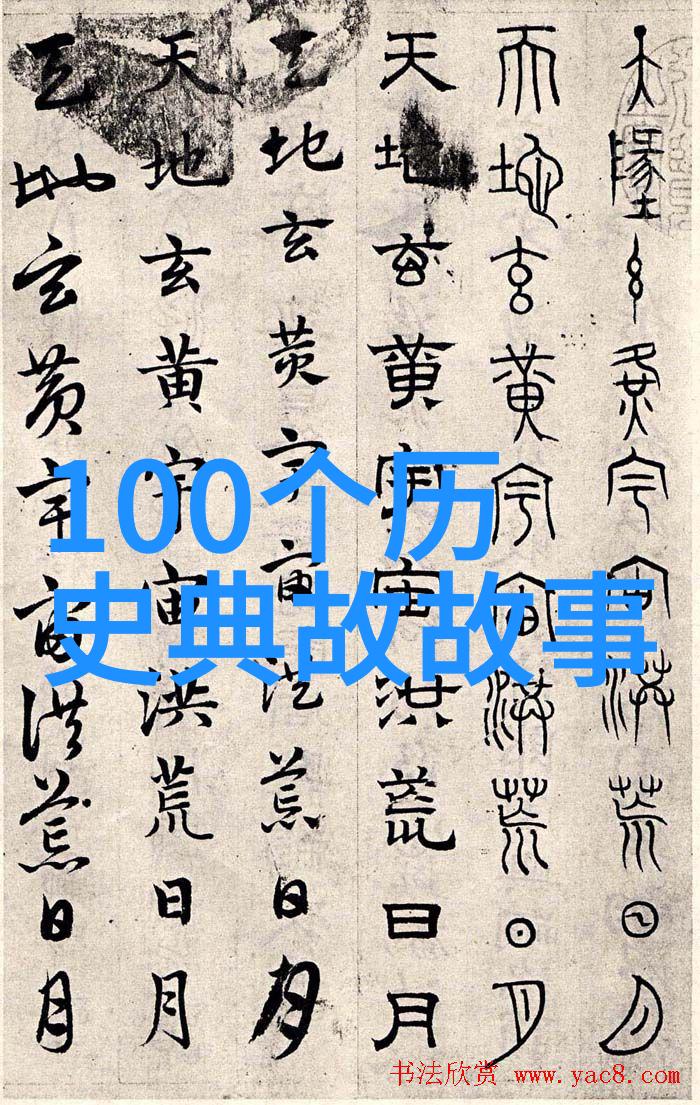 天墬玄黄宇宙洪荒日月
天地玄黄宇宙洪荒日月
天地玄黄宇宙洪荒日月
天地玄黄宇宙洪荒日月
天地玄黄宇宙洪荒日月
天地玄黄宇宙洪荒日月
100个历
史典故故事
书法欣赏 www.yac8.com